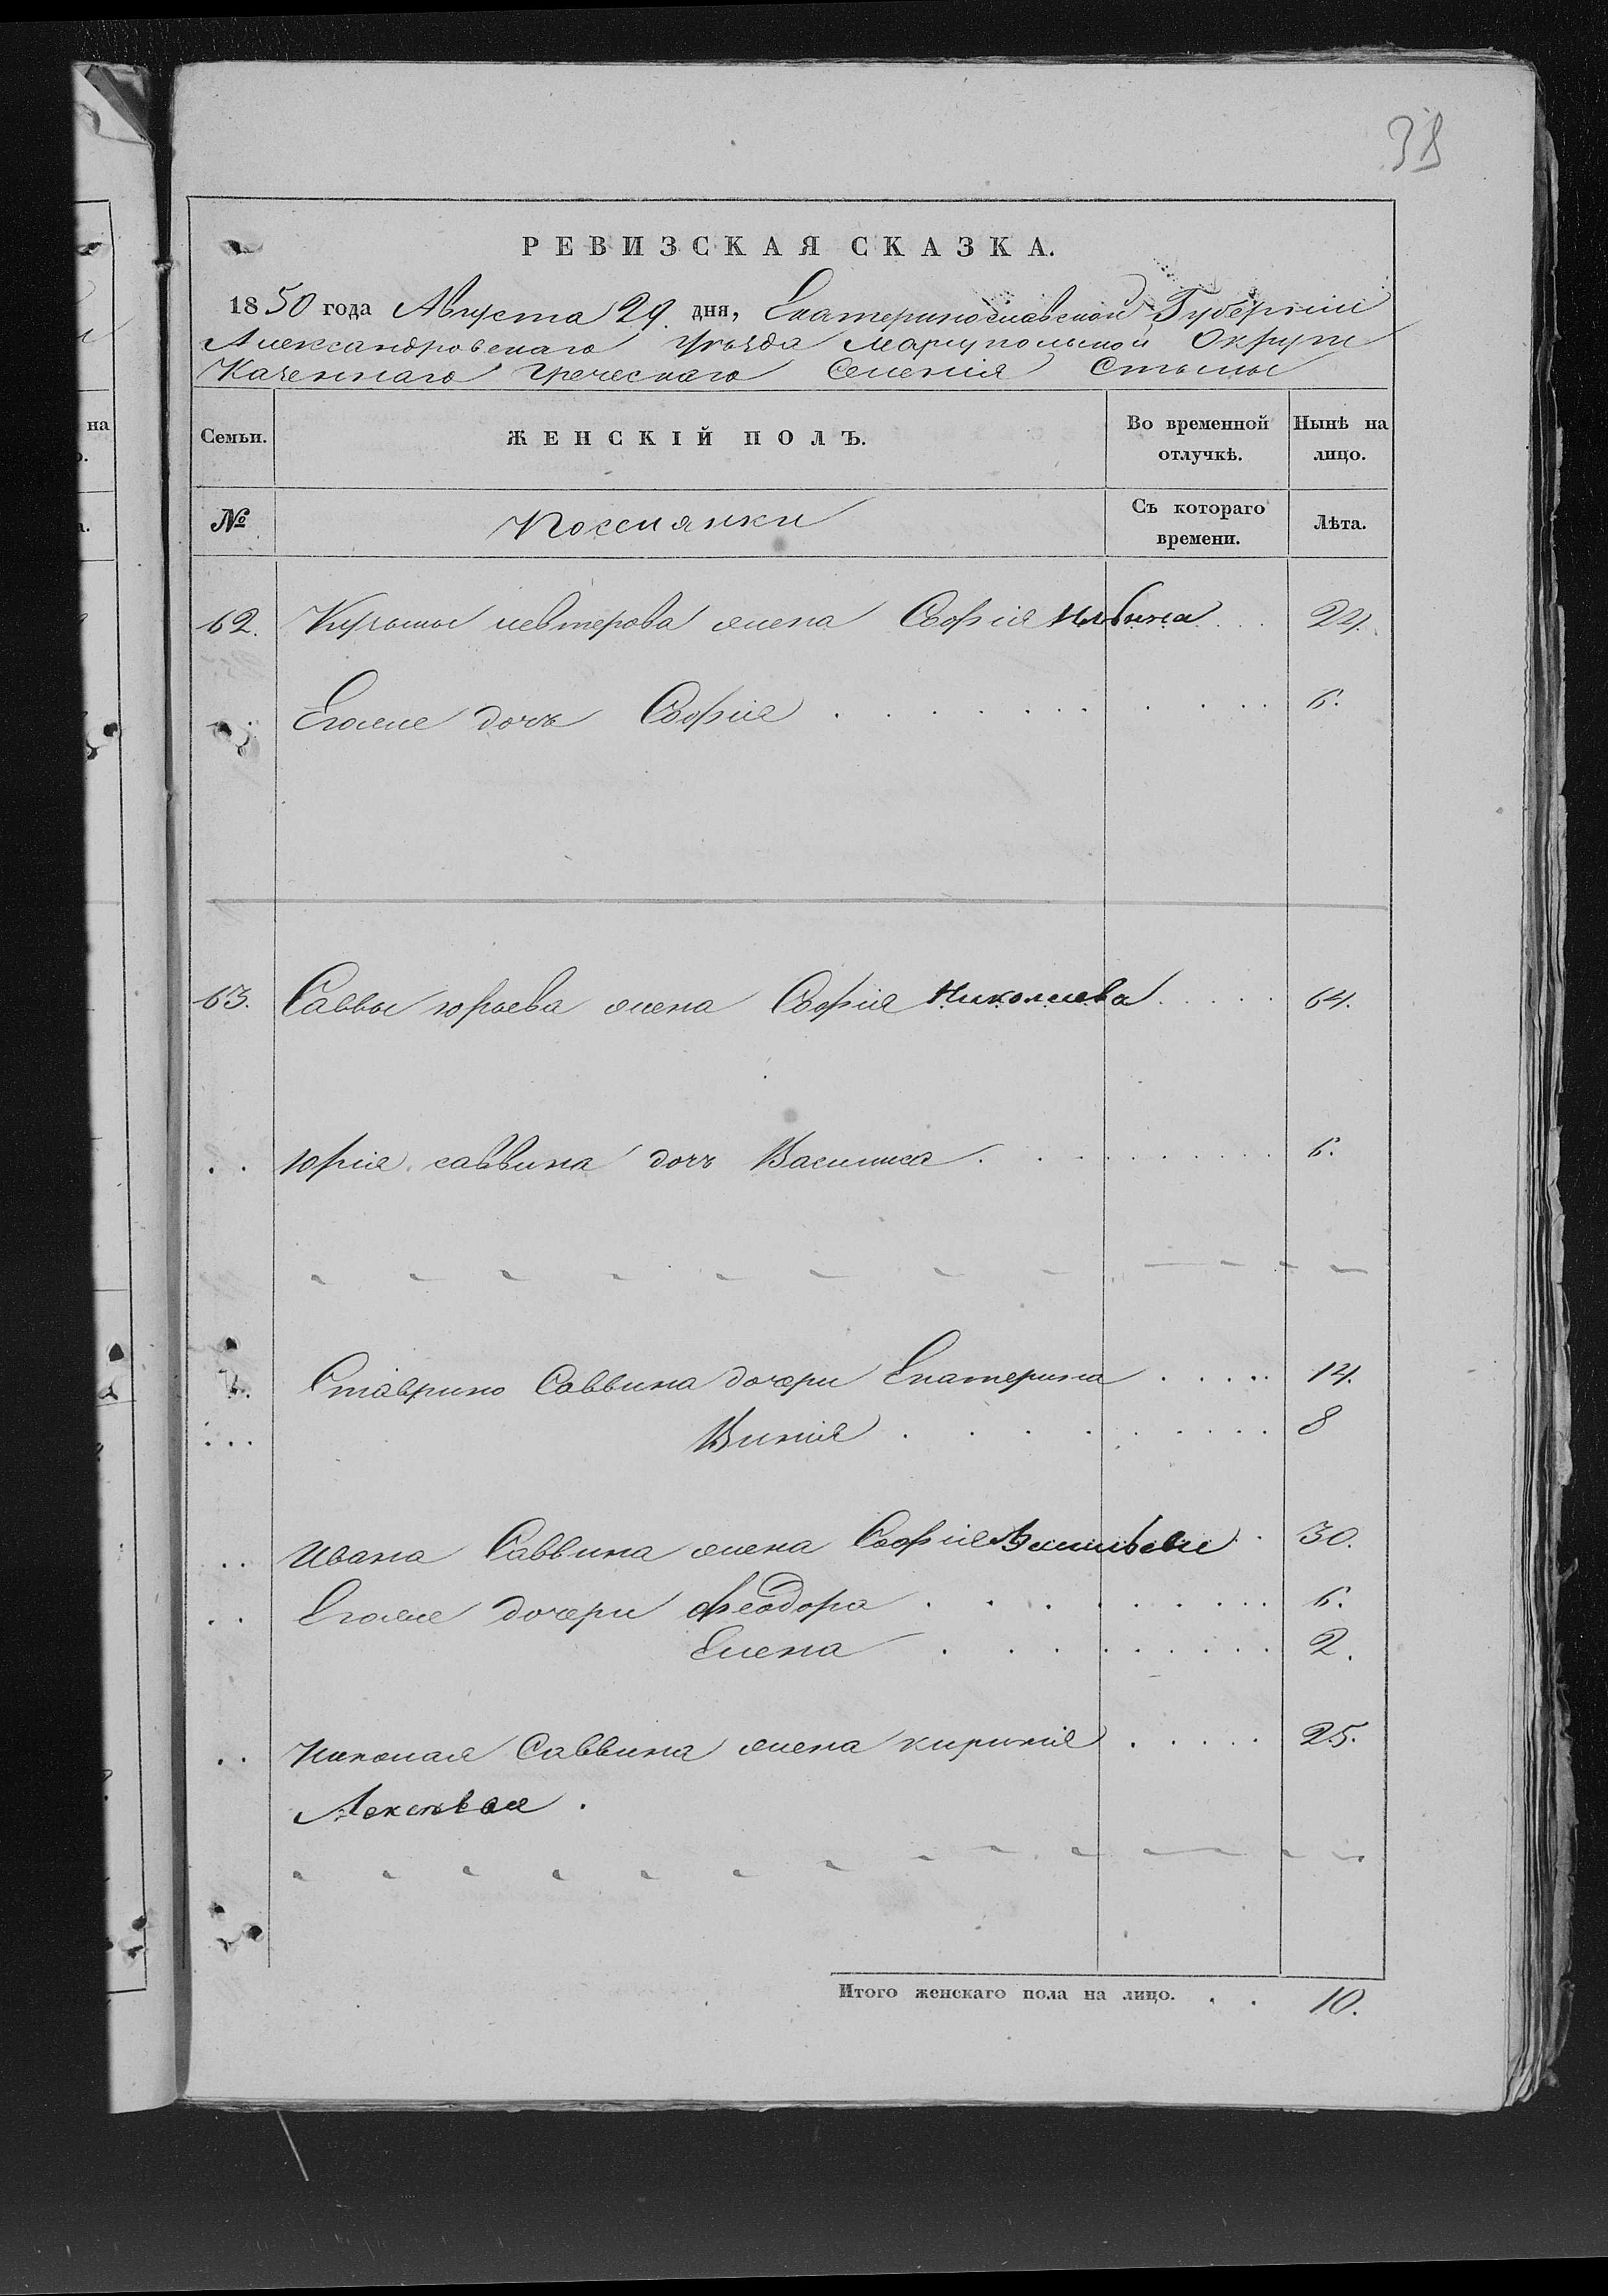 38
РЕВИЗСКАЯ СКАЗКА.
1850 года Августа 29. дня, Екатеринославской Губернiи
Александровскаго Уѣзда Марiупольской Округи
Казеннаго Греческаго Селенiя Стылы
Семьи. ЖЕНСКІЙ ПОЛЪ. Во временной отлучкѣ. Нынѣ на лицо.
№ Поселянки Съ котораго времени. Лѣта.
62. Кузьмы левтерова жена Софiя Ильина . . 24.
Егоже дочь Софiя . . . . . . . . . 6.
63. Саввы юрьева жена Софiя Николаева . . . . 64.
. . Юрiя саввина дочь Василиса . . . . . . . . 6.
Ставрино Саввина дочери Екатерина . . . . . 14.
. . . Викiя . . . . . . . . . 8
. . Ивана Саввина жена Софiя Васильева . 30.
. . Егоже дочери Феодора . . . . . . . . . 6.
Елена . . . . . . . . . 2.
. . Николая Саввина жена кирикiя . . . . . 25.
.
Итого женскаго пола на лицо. . . 10.
на